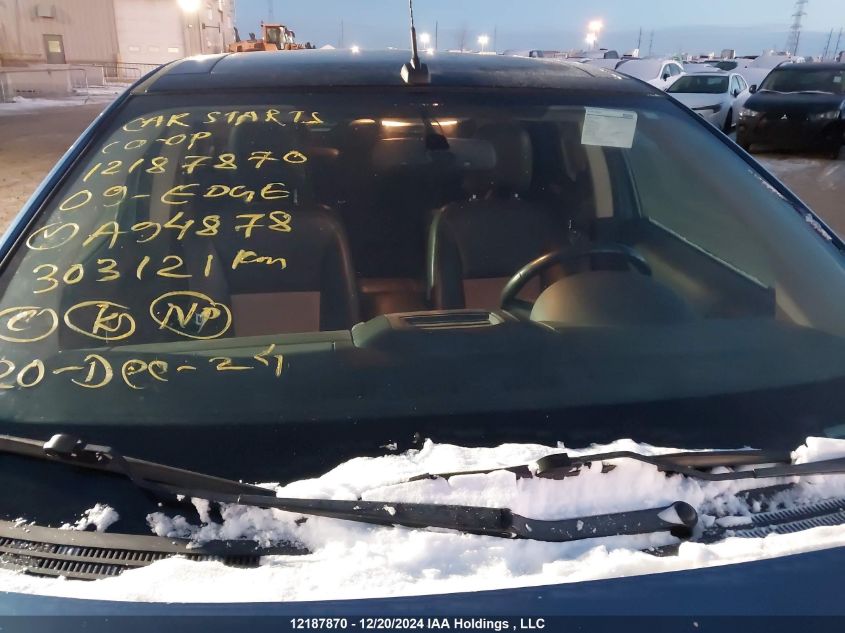 CAR STARTS
CO-OP
12187870
09-EDGE
✓ A94878
303121 Km
C K NP
20-Dec-24
12187870 - 12/20/2024 IAA Holdings , LLC